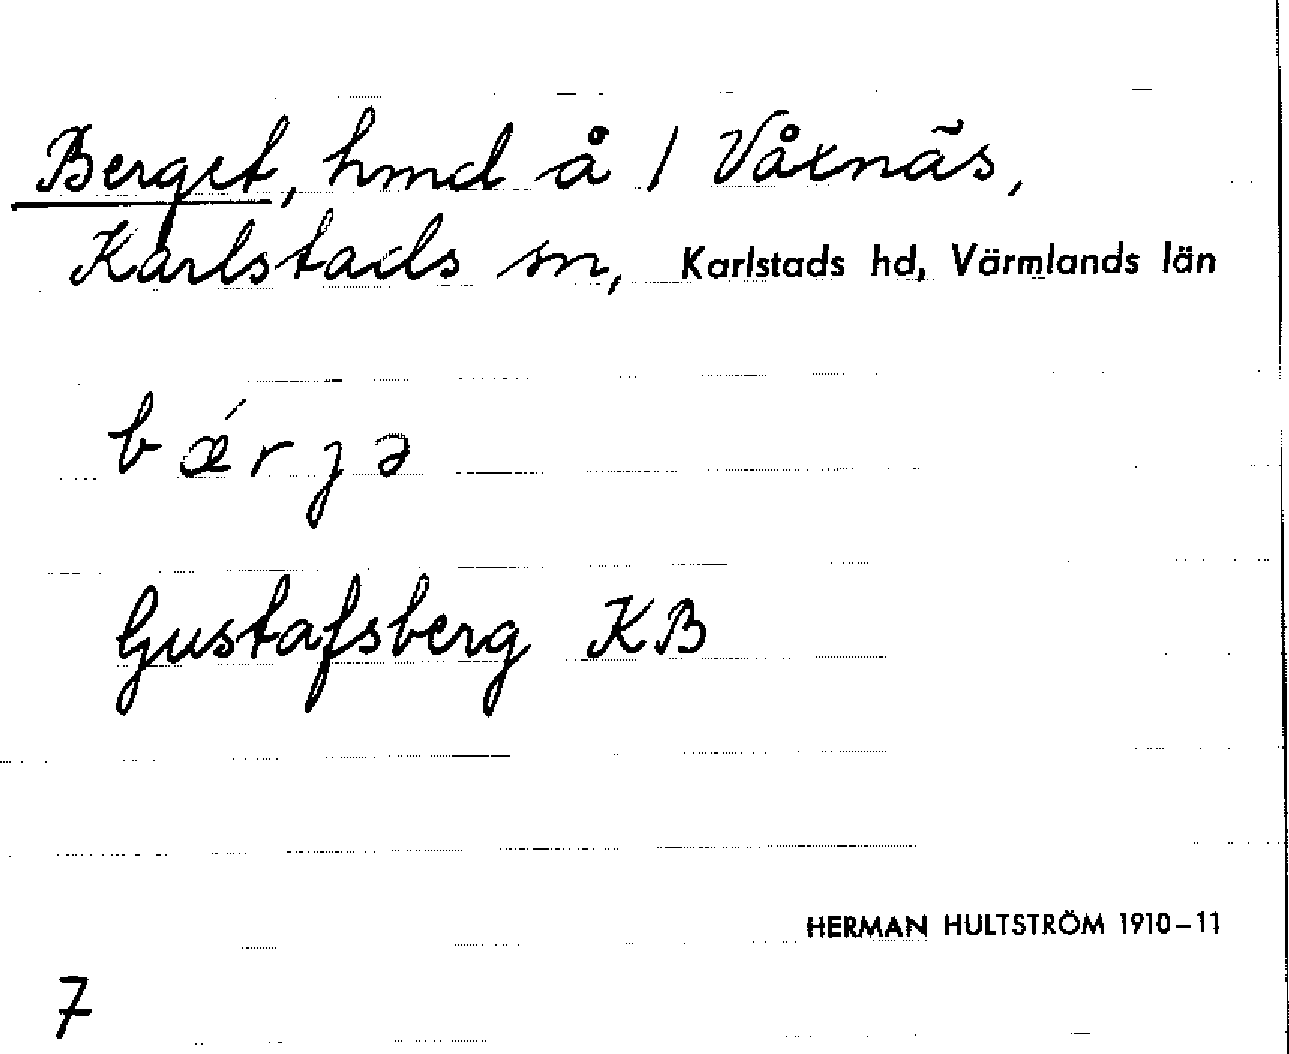 Berget, hmd å 1 Våxnäs,
Karlstads sn, Karlstads hd, Värmlands län
bǽrjə
Gustafsberg KB
HERMAN HULTSTRÖM 1910–11
7